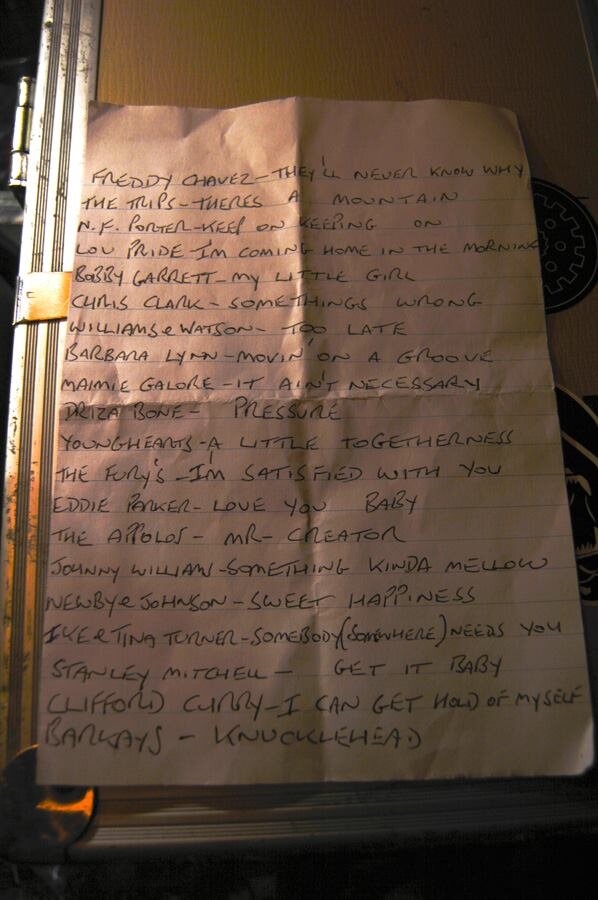 FREDDY CHAVEZ-THEY'LL NEVER KNOW WHY
THE TRIPS-THERES A MOUNTAIN
N.F. PORTER-KEEP ON KEEPING ON
LOU PRIDE-I'M COMING HOME IN THE MORNING
BOBBY GARRETT-MY LITTLE GIRL
CHRIS CLARK-SOMETHINGS WRONG
WILLIAMS & WATSON-TOO LATE
BARBARA LYNN-MOVIN' ON A GROOVE
MAIMIE GALORE-IT AIN'T NECESSARY
DRIZA BONE- PRESSURE
YOUNGHEARTS-A LITTLE TOGETHERNESS
THE FURY'S-I'M SATISFIED WITH YOU
EDDIE PARKER-LOVE YOU BABY
THE APPOLOS-MR-CREATOR
JOHNNY WILLIAMS-SOMETHING KINDA MELLOW
NEWBY & JOHNSON-SWEET HAPPINESS
IKE & TINA TURNER-SOMEBODY (SOMEWHERE) NEEDS YOU
STANLEY MITCHELL- GET IT BABY
CLIFFORD CURRY-I CAN GET HOLD OF MYSELF
BARKAYS - KNUCKLEHEAD